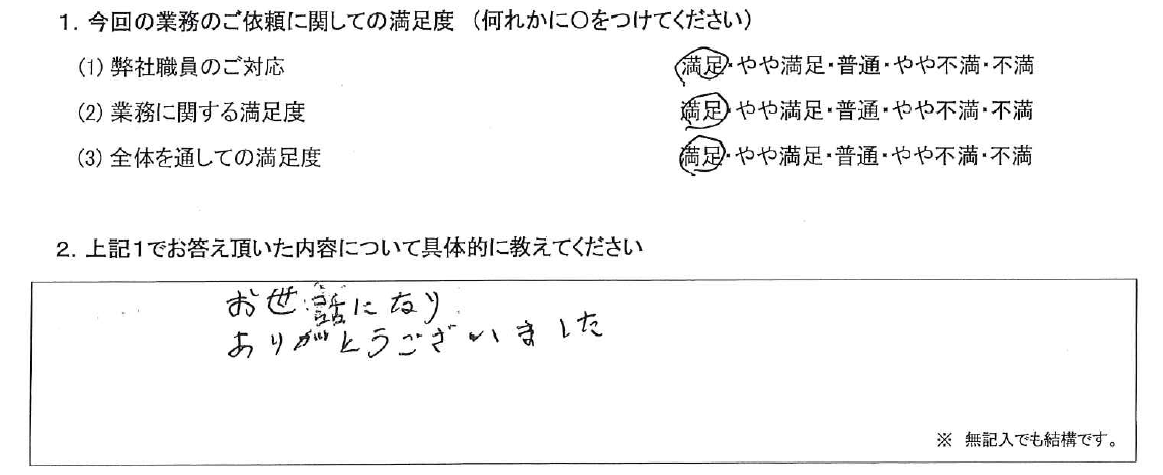 1. 今回の業務のご依頼に関しての満足度 (何れかに〇をつけてください)
(1) 弊社職員のご対応 満足・やや満足・普通・やや不満・不満
(2) 業務に関する満足度 満足・やや満足・普通・やや不満・不満
(3) 全体を通しての満足度 満足・やや満足・普通・やや不満・不満
2. 上記1でお答え頂いた内容について具体的に教えてください
お世話になり
ありがとうございました
※ 無記入でも結構です。